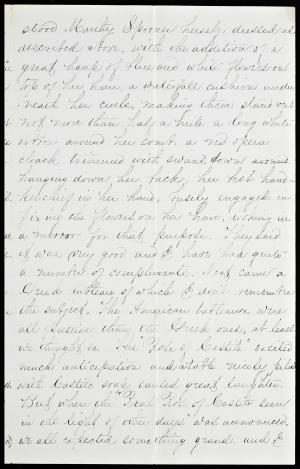 stood Martha Spence herself dressed as
described above, with the addition of a
great heap of blue and white flowers on
top of her hair, a waterfall cushion under
neath her curls, making them stand out
not more than half a mile a long white
ribbon around her comb. a red opera
cloak trimmed with swans down
hanging down her back, her best hand-
kerchief in her hand, busily engaged in
fixing the flowers on her hair, using
a mirror for that purpose. They said
it was very good and I have had quite
a number of compliments. Next came a
Greek tableau of which I don't remember
the subject. The American tableaux were
all prettier than the Greek ones, at least
we thought so. The "Role of Castile" excited
much anticipation and a table nicely piled
with Castile soap caused great laughter.
But when the "Real Role of Castile seen
in the light of other days" was announced,
we all expected something grand and I